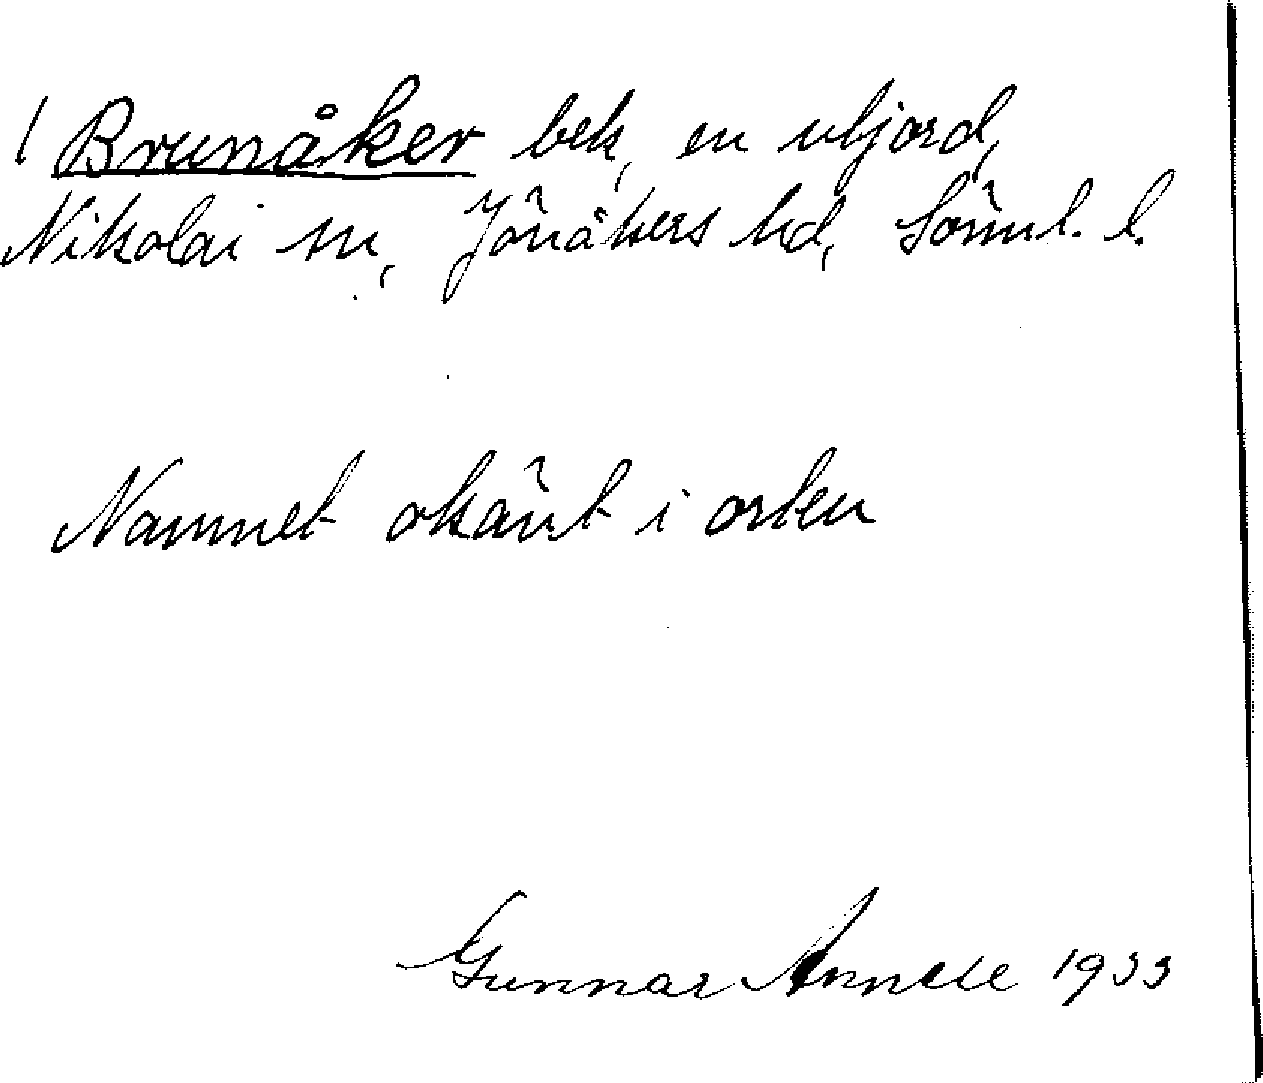 / Brunåker bek, en utjord,
Nikolai sn, Jönåkers hd, Sörml. l.
Namnet okänt i orten
Gunnar Annell 1933